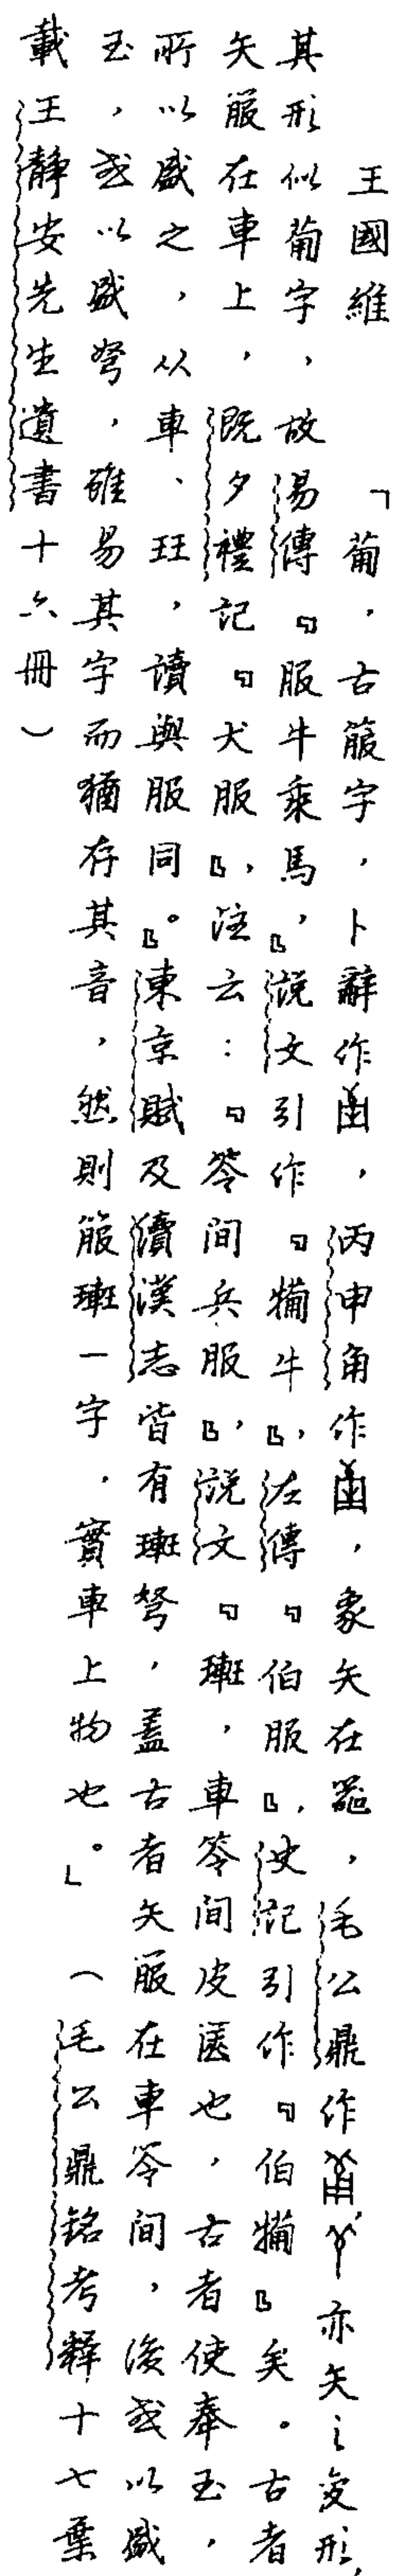 王國維　「葡，古箙字，卜辭作，丙申角作，象矢在器，毛公鼎作，亦矢之變形，
其形似葡字，故易傳『服牛乘馬』，說文引作『犕牛』，左傳『伯服』，史記引作『伯犕』矣。古者
矢服在車上，既夕禮記『犬服』，注云：『笭間兵服』，說文『㻫，車笭間皮篋也，古者使奉玉，
所以盛之，从車、玨，讀與服同』。東京賦及續漢志皆有㻫弩，蓋古者矢服在車笭間，後或以盛
玉，或以盛弩，雖易其字而猶存其音，然則箙㻫一字，實車上物也。」　（毛公鼎銘考釋十七葉
載王靜安先生遺書十六冊）